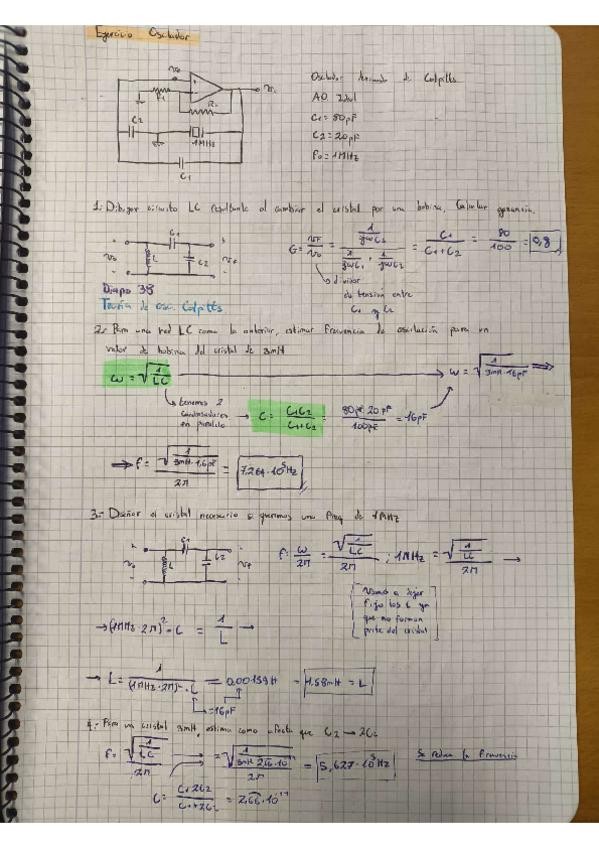 Ejercicio Oscilador
Oscilador de Colpitts
AO
C1 = 80pF
C2 = 20pF
F0 = 1MHz
R1
R2
C2
1MHz
C1
1. Dibujar circuito LC resultante al cambiar el cristal por una bobina. Calcular ganancia.
G = VF/V0 = (1/jωC2)/(1/jωC1 + 1/jωC2) = C1/(C1+C2) = 80/100 = 0,8
divisor
de tensión entre
C1 y C2
C1
V0
L
C2
VF
Diapo 38
Teoría de osc. Colpitts
2.- Para una red LC como la anterior, estimar frecuencia de oscilación para un
valor de bobina del cristal de 3mH
ω = √(1/LC) → ω = √(1/(3mH·16pF)) ⇒
tenemos 2
condensadores
en paralelo
→ C = C1C2/(C1+C2) = 80pF·20pF/100pF = 16pF
⇒ f = √(1/(3mH·1,6pF))/2π = 7.264·10⁵Hz
3.- Diseñar el cristal necesario si queremos una freq de 1MHz
C1
V0
L
C2
VF
f = ω/2π = √(1/LC)/2π ; 1MHz = √(1/LC)/2π →
Vamos a dejar
fijo los C ya
que no forman
parte del cristal
→ (1MHz·2π)²·C = 1/L →
→ L = 1/((1MHz·2π)²·C) = 0,00159H = 1.58mH = L
=16pF
4.- Para un cristal 3mH, estima como afecta que C2 → 2C2
f = √(1/LC)/2π → = √(1/(3mH·2,66·10⁻¹¹))/2π = 5,627·10⁵Hz
Se reduce la frecuencia
C = C1·2C2/(C1+2C2) = 2,66·10⁻¹¹